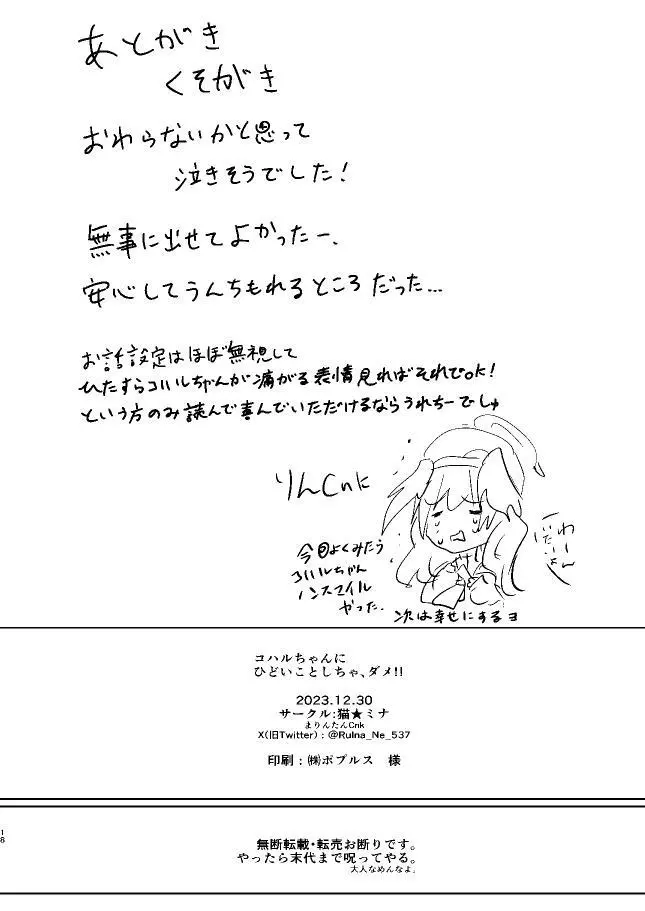 あとがき
くそがき
おわらないかと思って
泣きそうでした!
無事に出せてよかったー、
安心してうんちもれるところだった…
お話設定はほぼ無視して
ひたすらコハルちゃんが痛がる表情見ればそれでok!
という方のみ読んで喜んでいただけるならうれちーでしゅ
りんCnに
わーん
いたいよん
今回よくみたら
コハルちゃん
ノンスマイル
やった.
次は幸せにするヨ
コハルちゃんに
ひどいことしちゃ、ダメ!!
2023.12.30
サークル:猫★ミナ
まりんたんCnk
X(旧Twitter):@Rulna_Ne_537
印刷:㈱ポプルス 様
18
無断転載・転売お断りです。
やったら末代まで呪ってやる。
大人なめんなよ」